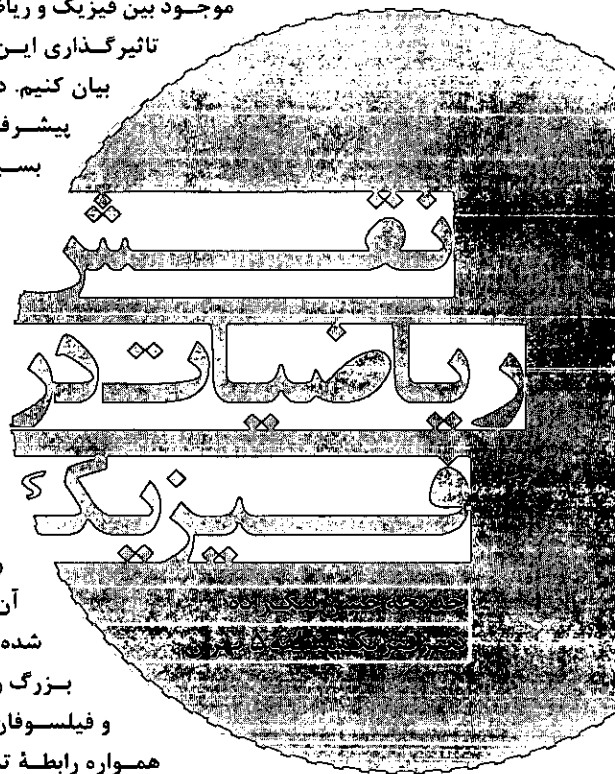 موجود بین فیزیک و ریاض
تاثیرگذاری این
بیان کنیم. د
پیشرف
بسی
نقش
ریاضیات در
فیزیک
و
آن
شده
بزرگ و
و فیلسوفان
همواره رابطهٔ تن